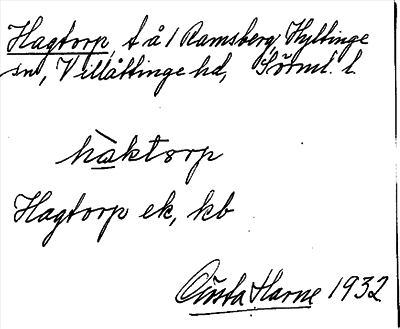 Hagtorp, t å 1 Ramsberg, Hyltinge
sn, Villåttinge hd, Södml. l.
hàktorp
Hagtorp ek, kb
Gusta Harne 1932